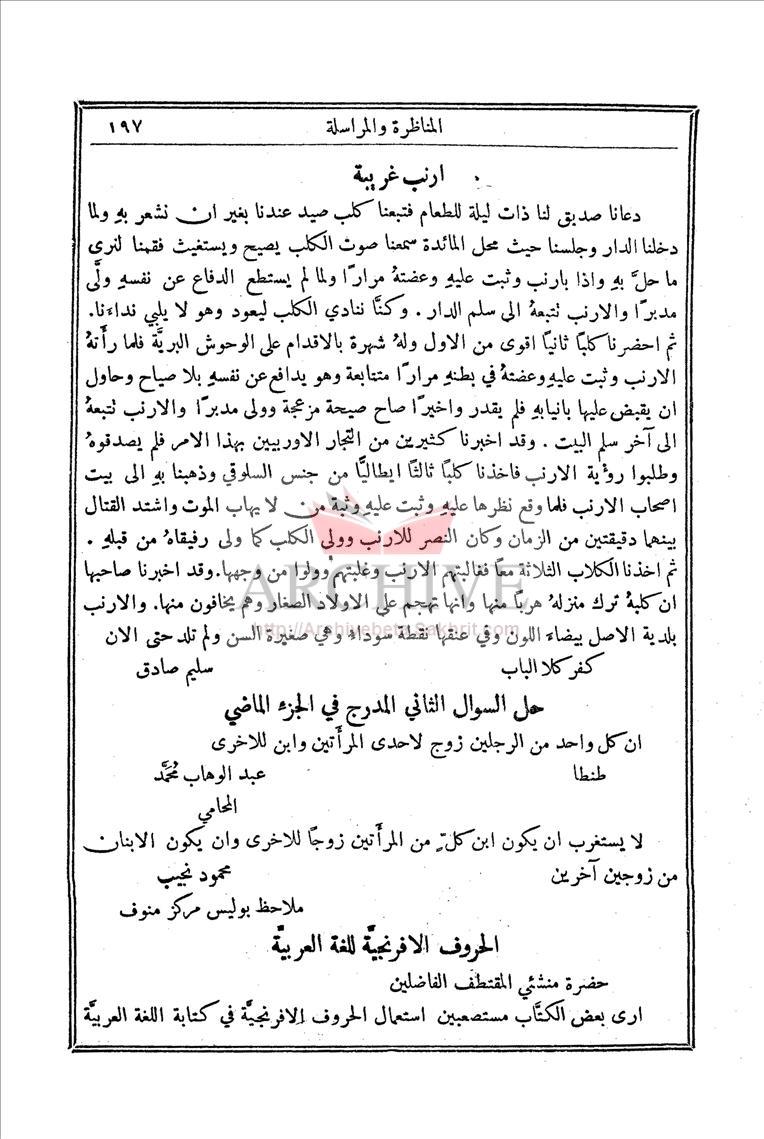 المناظرة والمراسلة ١٩٧
ارنب غريبة
دعانا صديق لنا ذات ليلة للطعام فتبعنا كلب صيد عندنا بغير ان نشعر بهِ ولما
دخلنا الدار وجلسنا حيث محل المائدة سمعنا صوت الكلب يصيح ويستغيث فقمنا لنرى
ما حلَّ بهِ واذا بارنب وثبت عليهِ وعضتهُ مرارًا ولما لم يستطع الدفاع عن نفسهِ ولَّى
مدبرًا والارنب تتبعهُ الى سلم الدار . وكنَّا ننادي الكلب ليعود وهو لا يلبي نداءَنا.
ثم احضرنا كلبًا ثانيًا اقوى من الاول ولهُ شهرة بالاقدام على الوحوش البريَّة فلما رأَتهُ
الارنب وثبت عليهِ وعضتهُ في بطنهِ مرارًا متتابعة وهو يدافع عن نفسهِ بلا صياح وحاول
ان يقبض عليها بانيابهِ فلم يقدر واخيرًا صاح صيحة مزعجة وولى مدبرًا والارنب تتبعهُ
الى آخر سلم البيت . وقد اخبرنا كثيرين من التجار الاوربيين بهذا الامر فلم يصدقوهُ
وطلبوا رؤية الارنب فاخذنا كلبًا ثالثًا ايطاليًّا من جنس السلوقي وذهبنا بهِ الى بيت
اصحاب الارنب فلما وقع نظرها عليهِ وثبت عليهِ وثبة من لا يهاب الموت واشتد القتال
بينهما دقيقتين من الزمان وكان النصر للارنب وولى الكلب كما ولى رفيقاهُ من قبلهِ .
ثم اخذنا الكلاب الثلاثة معًا فقاتلتهم الارنب وغلبتهم وولوا من وجهها. وقد اخبرنا صاحبها
ان كلبهُ ترك منزلهُ هربًا منها وانها تهجم على الاولاد الصغار وهم يخافون منها. والارنب
بلدية الاصل بيضاء اللون وفي عنقها نقطة سوداء وهي صغيرة السن ولم تلد حتى الان
كفر كلا الباب سليم صادق
حل السوال الثاني المدرج في الجزء الماضي
ان كل واحد من الرجلين زوج لاحدى المرأَتين وابن للاخرى
طنطا عبد الوهاب مُحَمَّد
المحامي
لا يستغرب ان يكون ابن كلٍّ من المرأَتين زوجًا للاخرى وان يكون الابنان
من زوجين آخرين محمود نجيب
ملاحظ بوليس مركز منوف
الحروف الافرنجيَّة للغة العربيَّة
حضرة منشئي المقتطف الفاضلين
ارى بعض الكتَّاب مستصعبين استعمال الحروف الافرنجيَّة في كتابة اللغة العربيَّة
ARCHIVE
http://Archivebeta.Sakhrit.com